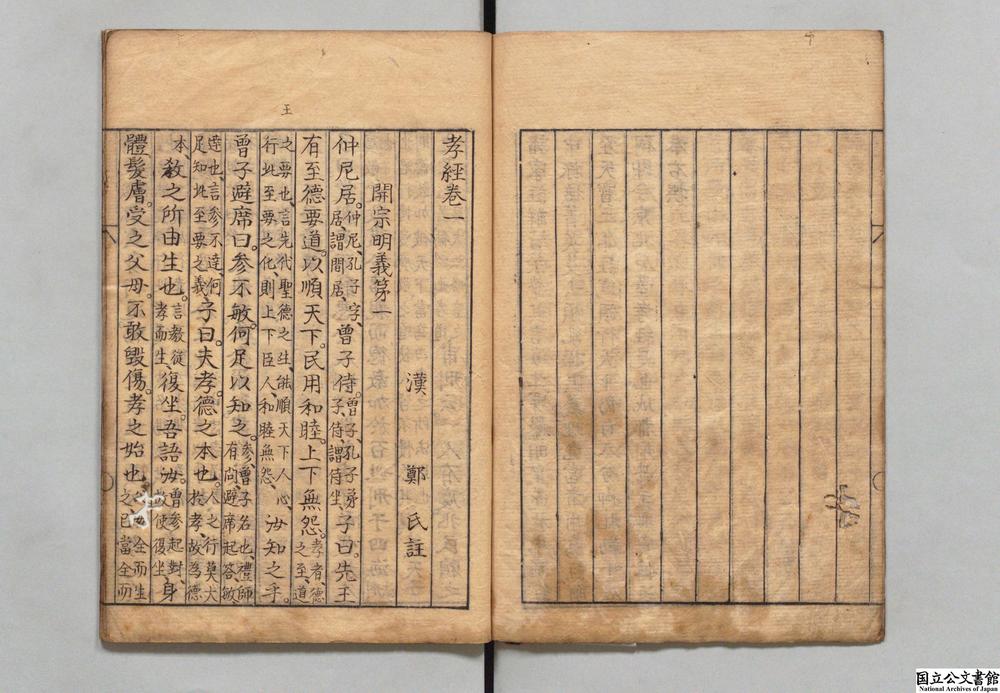 王
孝經卷一
漢 鄭 氏註
開宗明義第一
仲尼居。仲尼孔子字、居、謂間居、曾子侍。曾子、孔子弟子、侍、謂侍坐、子曰。先王
有至德要道。以順天下。民用和睦。上下無怨。孝者、德之至、道
之要也、言先代聖德之主、能順天下人心、行此至要之化、則上下臣人、和睦無怨、汝知之乎。
曾子避席曰。參不敏何足以知之。參曾子名也、禮師有問避席起答、敏
達也、言參不達、何足知此至要之義、子曰。夫孝德之本也。人之行莫大於孝、故為德
本、教之所由生也。言教從孝而生、復坐。吾語汝。曾參起對、故使復坐、身
體髮膚。受之父母。不敢毀傷。孝之始也。全而生之己當全而
国立公文書館
National Archives of Japan